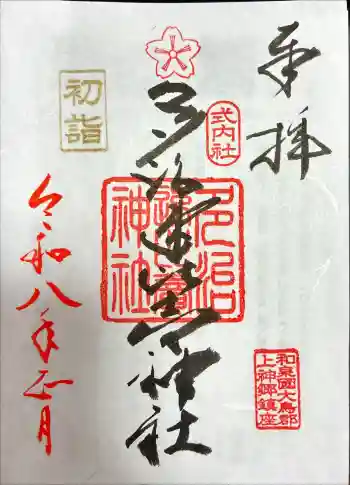 奉拝
式内社
多治速比売神社
多治速比売神社
和泉國大鳥郡
上神郷鎮座
初詣
令和八年正月